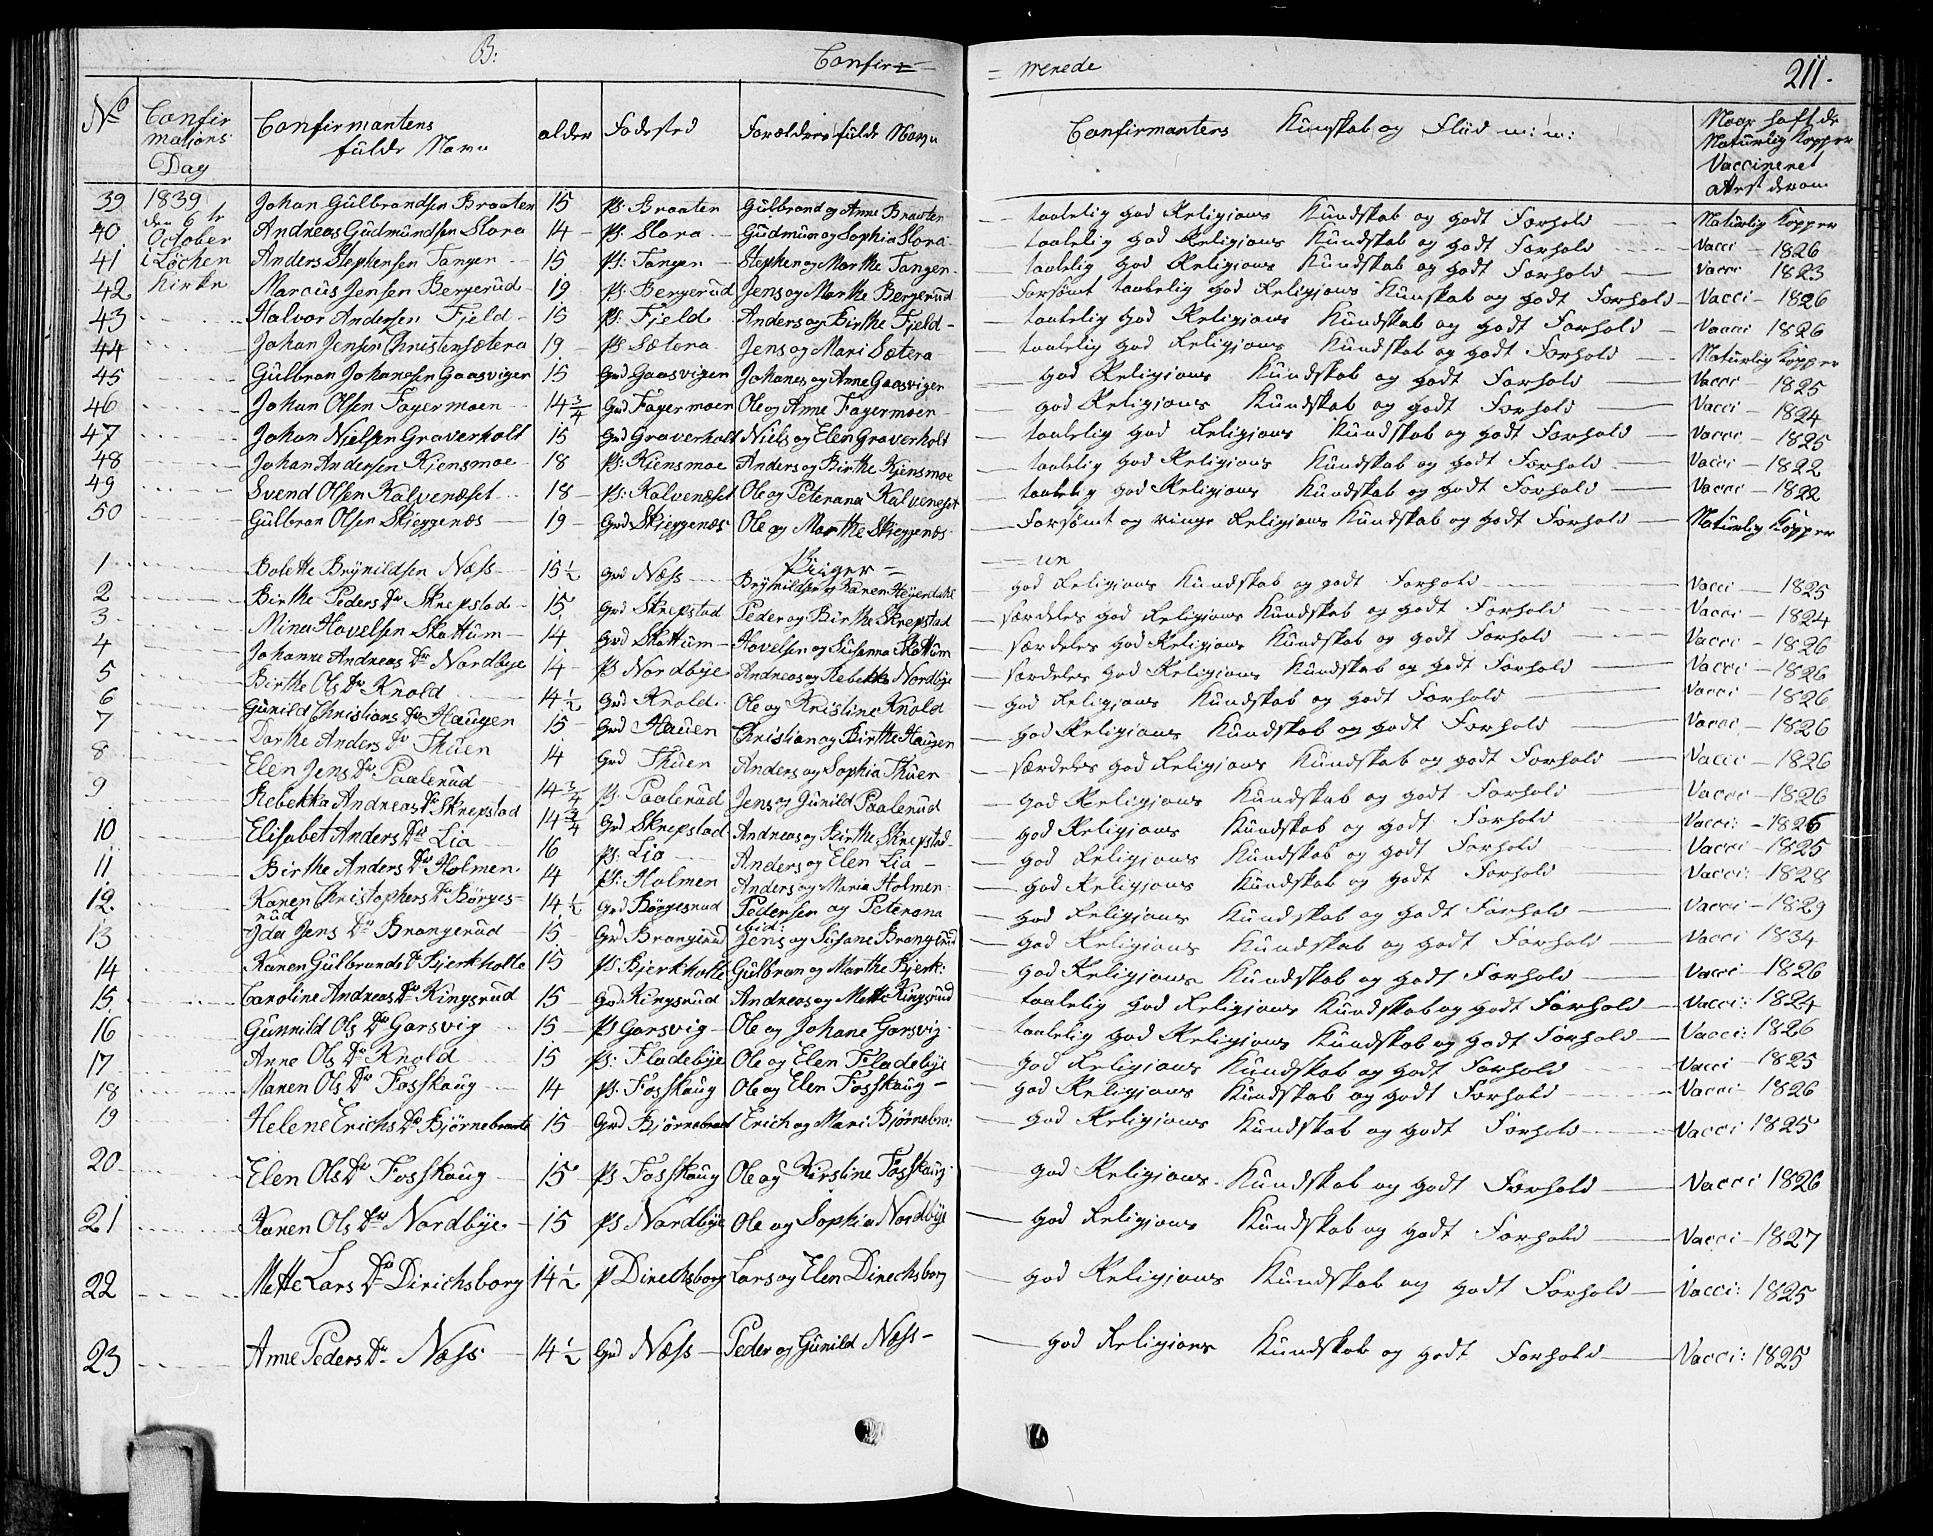 B: Confir= = merede 211.
No Confirmations Day Confirmantens fulde Navn alder Fødested Forældres fulde Navn Confirmantens Kunskab og Fliid m: m: Naar haft de Naturlig Kopper Vaccineret
39 1839 Johan Gulbrandsen Braaten 15 Ps: Braaten Gulbrand og Anne Braaten taalelig god Religions Kundskab og godt Forhold Naturlig Kopper
40 den 6te October Andreas Gudmundsen Slora 14 Ps: Slora Gudmun og Sophia Slora taalelig god Religions Kundskab og godt Forhold Vacci 1826
41 i Løchen Anders Stephensen Tangen 15 Ps: Tangen Stephen og Marthe Tangen taalelig god Religions Kundskab og godt Forhold Vacci 1823
42 Kirke Marcus Jensen Bergerud 19 Ps: Bergerud Jens og Marthe Bergerud Forsømt taalelig god Religions Kunskab og godt Forhold Vacci 1826
43 Halvor Andersen Fjeld 15 Ps: Fjeld Anders og Birthe Fjeld taalelig god Religions Kundskab og godt Forhold Vacci 1826
44 Johan Jensen Christensætera 19 Ps Sætera Jens og Mari Sætera taalelig god Religions Kundskab og godt Forhold Naturlig Kopper
45 Gulbran Johanesen Gaasviger 15 Grd Gaasvigen Johanes og Anne Gaasviger god Religions Kundskab og godt Forhold Vacci 1825
46 Johan Olsen Fagermoen 14 3/4 Grd Fagermoen Ole og Anne Fagermoen god Religions Kundskab og godt Forhold Vacci 1824
47 Johan Nielsen Graverholt 15 Grd Graverholt Niels og Elen Graverholt taalelig god Religions Kundskab og godt Forhold Vacci 1825
48 Johan Andersen Kjensmoe 18 Ps: Kiensmoe Anders og Birthe Kjensmoe taalelig god Religions Kundskab og godt Forhold Vacci 1822
49 Svend Olsen Kalvenæset 18 Ps: Kalvenæset Ole og Peterana Kalvenæset taalelig god Religions Kundskab og godt Forhold Vacci 1822
50 Gulbran Olsen Skjeggenæs 19 Grd Skjeggenæs Ole og Marthe Skjeggenæs Forsømt og ringe Religions Kundskab og godt Forhold Naturlig Kopper
Piiger
1 Bolette Brynildsen Næss 15 1/2 Grd Næss Brynildsen og Karen Heyerdahl god Religions Kundskab og godt Forhold Vacci 1825
2 Birthe Peders Dr Skrepstad 15 Grd Skrepstad Peder og Birthe Skrepstad særdeles god Religions Kundskab og godt Forhold Vacci 1824
3 Mina Hovelsen Skattum 14 Grd Skattum Hovelsen og Susanna Skattum særdeles god Religions Kundskab og godt Forhold Vacci 1826
4 Johanne Andreas Dr Nordbye 14 Ps Nordbye Andreas og Rebekka Nordbye særdeles god Religions Kundskab og godt Forhold Vacci 1826
5 Birthe Ols Dr Knold 14 1/2 Grd Knold Ole og Kristine Knold god Religions Kundskab og godt Forhold Vacci 1826
6 Gunild Christians Dr Haugen 15 Grd Hauen Christian og Birthe Haugen god Religions Kundskab og godt Forhold Vacci 1826
7 Dorthe Anders Dr Thuen 14 Grd Thuen Anders og Sophia Thuen særdeles god Religions Kundskab og godt Forhold Vacci 1826
8 Elen Jens Dr Paalerud 14 3/4 Ps Paalerud Jens og Gunild Paalerud god Religions Kundskab og godt Forhold Vacci 1826
9 Rebekka Andreas Dr Skrepstad 14 3/4 Grd Skrepstad Andreas og Birthe Skrepstad god Religions Kundskab og godt Forhold Vacci: 1826
10 Elisabet Anders Dr Lia 16 Ps: Lia Anders og Elen Lia god Religions Kundskab og godt Forhold Vacci 1825
11 Birthe Anders Dr Holmen 14 Ps: Holmen Anders og Maria Holmen god Religions Kundskab og godt Forhold Vacci: 1828
12 Karen Christophers Dr Børgesrud 14 1/2 Grd Børgesrud Pedersen og Peterana ibid: god Religions Kundskab og godt Forhold Vacci 1829
13 Ida Jens Dr Brangerud 15 Gr Brangerud Jens og Susane Brangerud god Religions Kundskab og godt Forhold Vacci 1834
14 Karen Gulbrands Dr Bjerkholte 15 Ps Bjerkholte Gulbran og Marthe Bjerk: god Religions Kundskab og godt Forhold Vacci 1826
15 Caroline Andreas Dr Kingsrud 15 Gr Kingsrud Andreas og Mette Kingsrud taalelig god Religions Kundskab og godt Forhold Vacci: 1824
16 Gunnild Ols Dr Garsvig 15 Ps Garsvig Ole og Johane Garsvig taalelig god Religions Kundskab og godt Forhold Vacci: 1826
17 Anne Ols Dr Knold 15 Ps: Fladebye Ole og Elen Fladebye god Religions Kundskab og godt Forhold Vacci 1825
18 Maren Ols Dr Fosskaug 14 Ps: Fosskaug Ole og Elen Fosskaug god Religions Kundskab og godt Forhold Vacci 1826
19 Helene Erichs Dr Bjørnebraate 15 Grd Bjørnebraat Erich og Mari Bjørnebra: god Religions Kundskab og godt Forhold Vacci 1825
20 Elen Ols Dr Fosskaug 15 Ps Fosskaug Ole og Kirstine Fosskaug god Religions Kundskab og godt Forhold Vacci 1826
21 Karen Ols Dr Nordbye 15 Ps Nordbye Ole og Sophia Nordbye god Religions Kundskab og godt Forhold Vacci 1827
22 Mette Lars Dr Dirichsborg 14 1/2 P Direchsborg Lars og Elen Direchsborg god Religions Kundskab og godt Forhold Vacci: 1825
23 Anne Peders Dr Næss 14 1/2 Grd Næss Peder og Gunild Næss god Religions Kundskab og godt Forhold Vacci: 1825